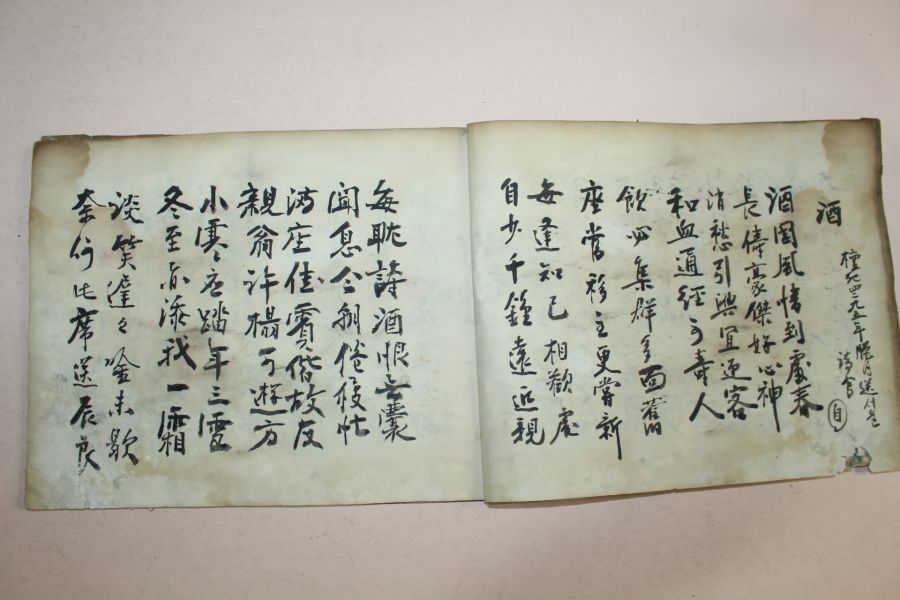 酒
檀紀四二九五年臘月送
詩會 自
酒國風情到處春
長俸豪傑好心神
消愁引興宜迎客
和血通經可壽人
飲必集群多面舊
座當移主更嘗新
每逢知己相歡處
自少千鍾遠近親
每耽詩酒恨無囊
聞息今朝倦後忙
滿座佳賓偕故友
親翁許榻可遊方
小寒方踏年三雪
冬至亦添我一霜
談笑達々吟未歇
奈何此席送辰良